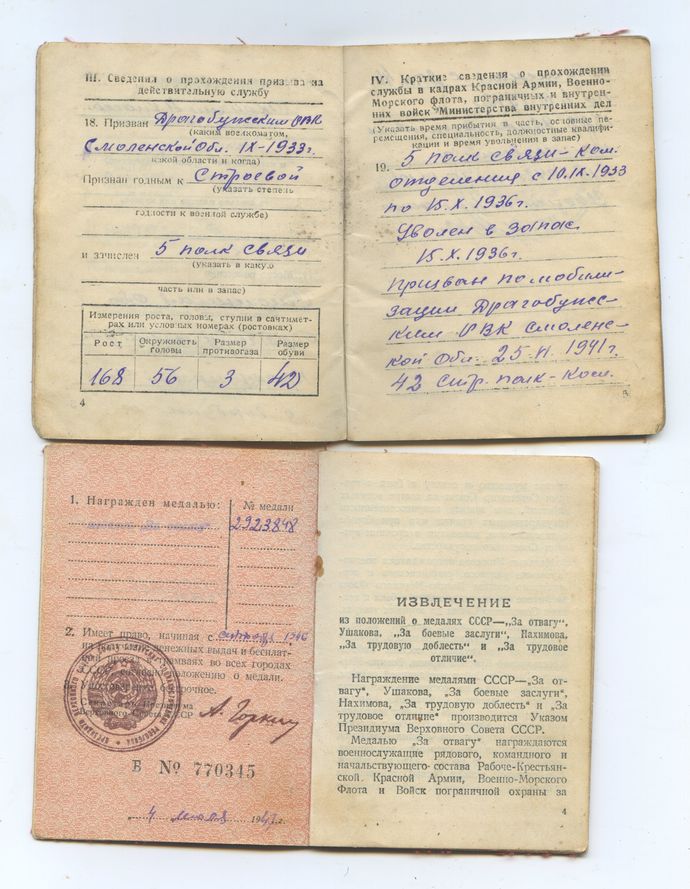 III. Сведения о прохождении призыва на
действительную службу
18. Призван Драгобужским РВК
(каким военкоматом,
Смоленской Обл. IX-1933г.
какой области и когда)
Признан годным к Строевой
(указать степень
годности к военной службе)
и зачислен 5 полк связи
(указать в какую
часть или в запас)
Измерения роста, головы, ступни в сантимет-
рах или условных номерах (ростовках)
Рост Окружность головы Размер противогаза Размер обуви
168 56 3 42
4
IV. Краткие сведения о прохождении
службы в кадрах Красной Армии, Военно-
Морского флота, пограничных и внутрен-
них войск Министерства внутренних дел
(Указать время прибытия в часть, основные пе-
ремещения, специальность, должностные квалифи-
кации и время увольнения в запас)
19. 5 полк связи - Ком.
отделения с 10.IX.1933
по 15.X.1936г.
Уволен в запас
15.X.1936г.
Призван по мобили-
зации Драгобужс-
ким РВК Смоленс-
кой Обл. 25. 1941г.
42 Стр. полк - Ком.
5
1. Награжден медалью: № медали
2923848
2. Имеет право, начиная с 1946
денежных выдач и бесплат-
проезд в трамваях во всех городах
положению о медали.
Президиума
Верховного Совета СССР А. Горкин
В № 770345
4 1947г.
ИЗВЛЕЧЕНИЕ
из положений о медалях СССР—„За отвагу“,
Ушакова, „За боевые заслуги“, Нахимова,
„За трудовую доблесть“ и „За трудовое
отличие“.
Награждение медалями СССР—„За от-
вагу“, Ушакова, „За боевые заслуги“,
Нахимова, „За трудовую доблесть“ и „За
трудовое отличие“ производится Указом
Президиума Верховного Совета СССР.
Медалью „За отвагу“ награждаются
военнослужащие рядового, командного и
начальствующего состава Рабоче-Крестьян-
ской Красной Армии, Военно-Морского
Флота и Войск пограничной охраны за
4